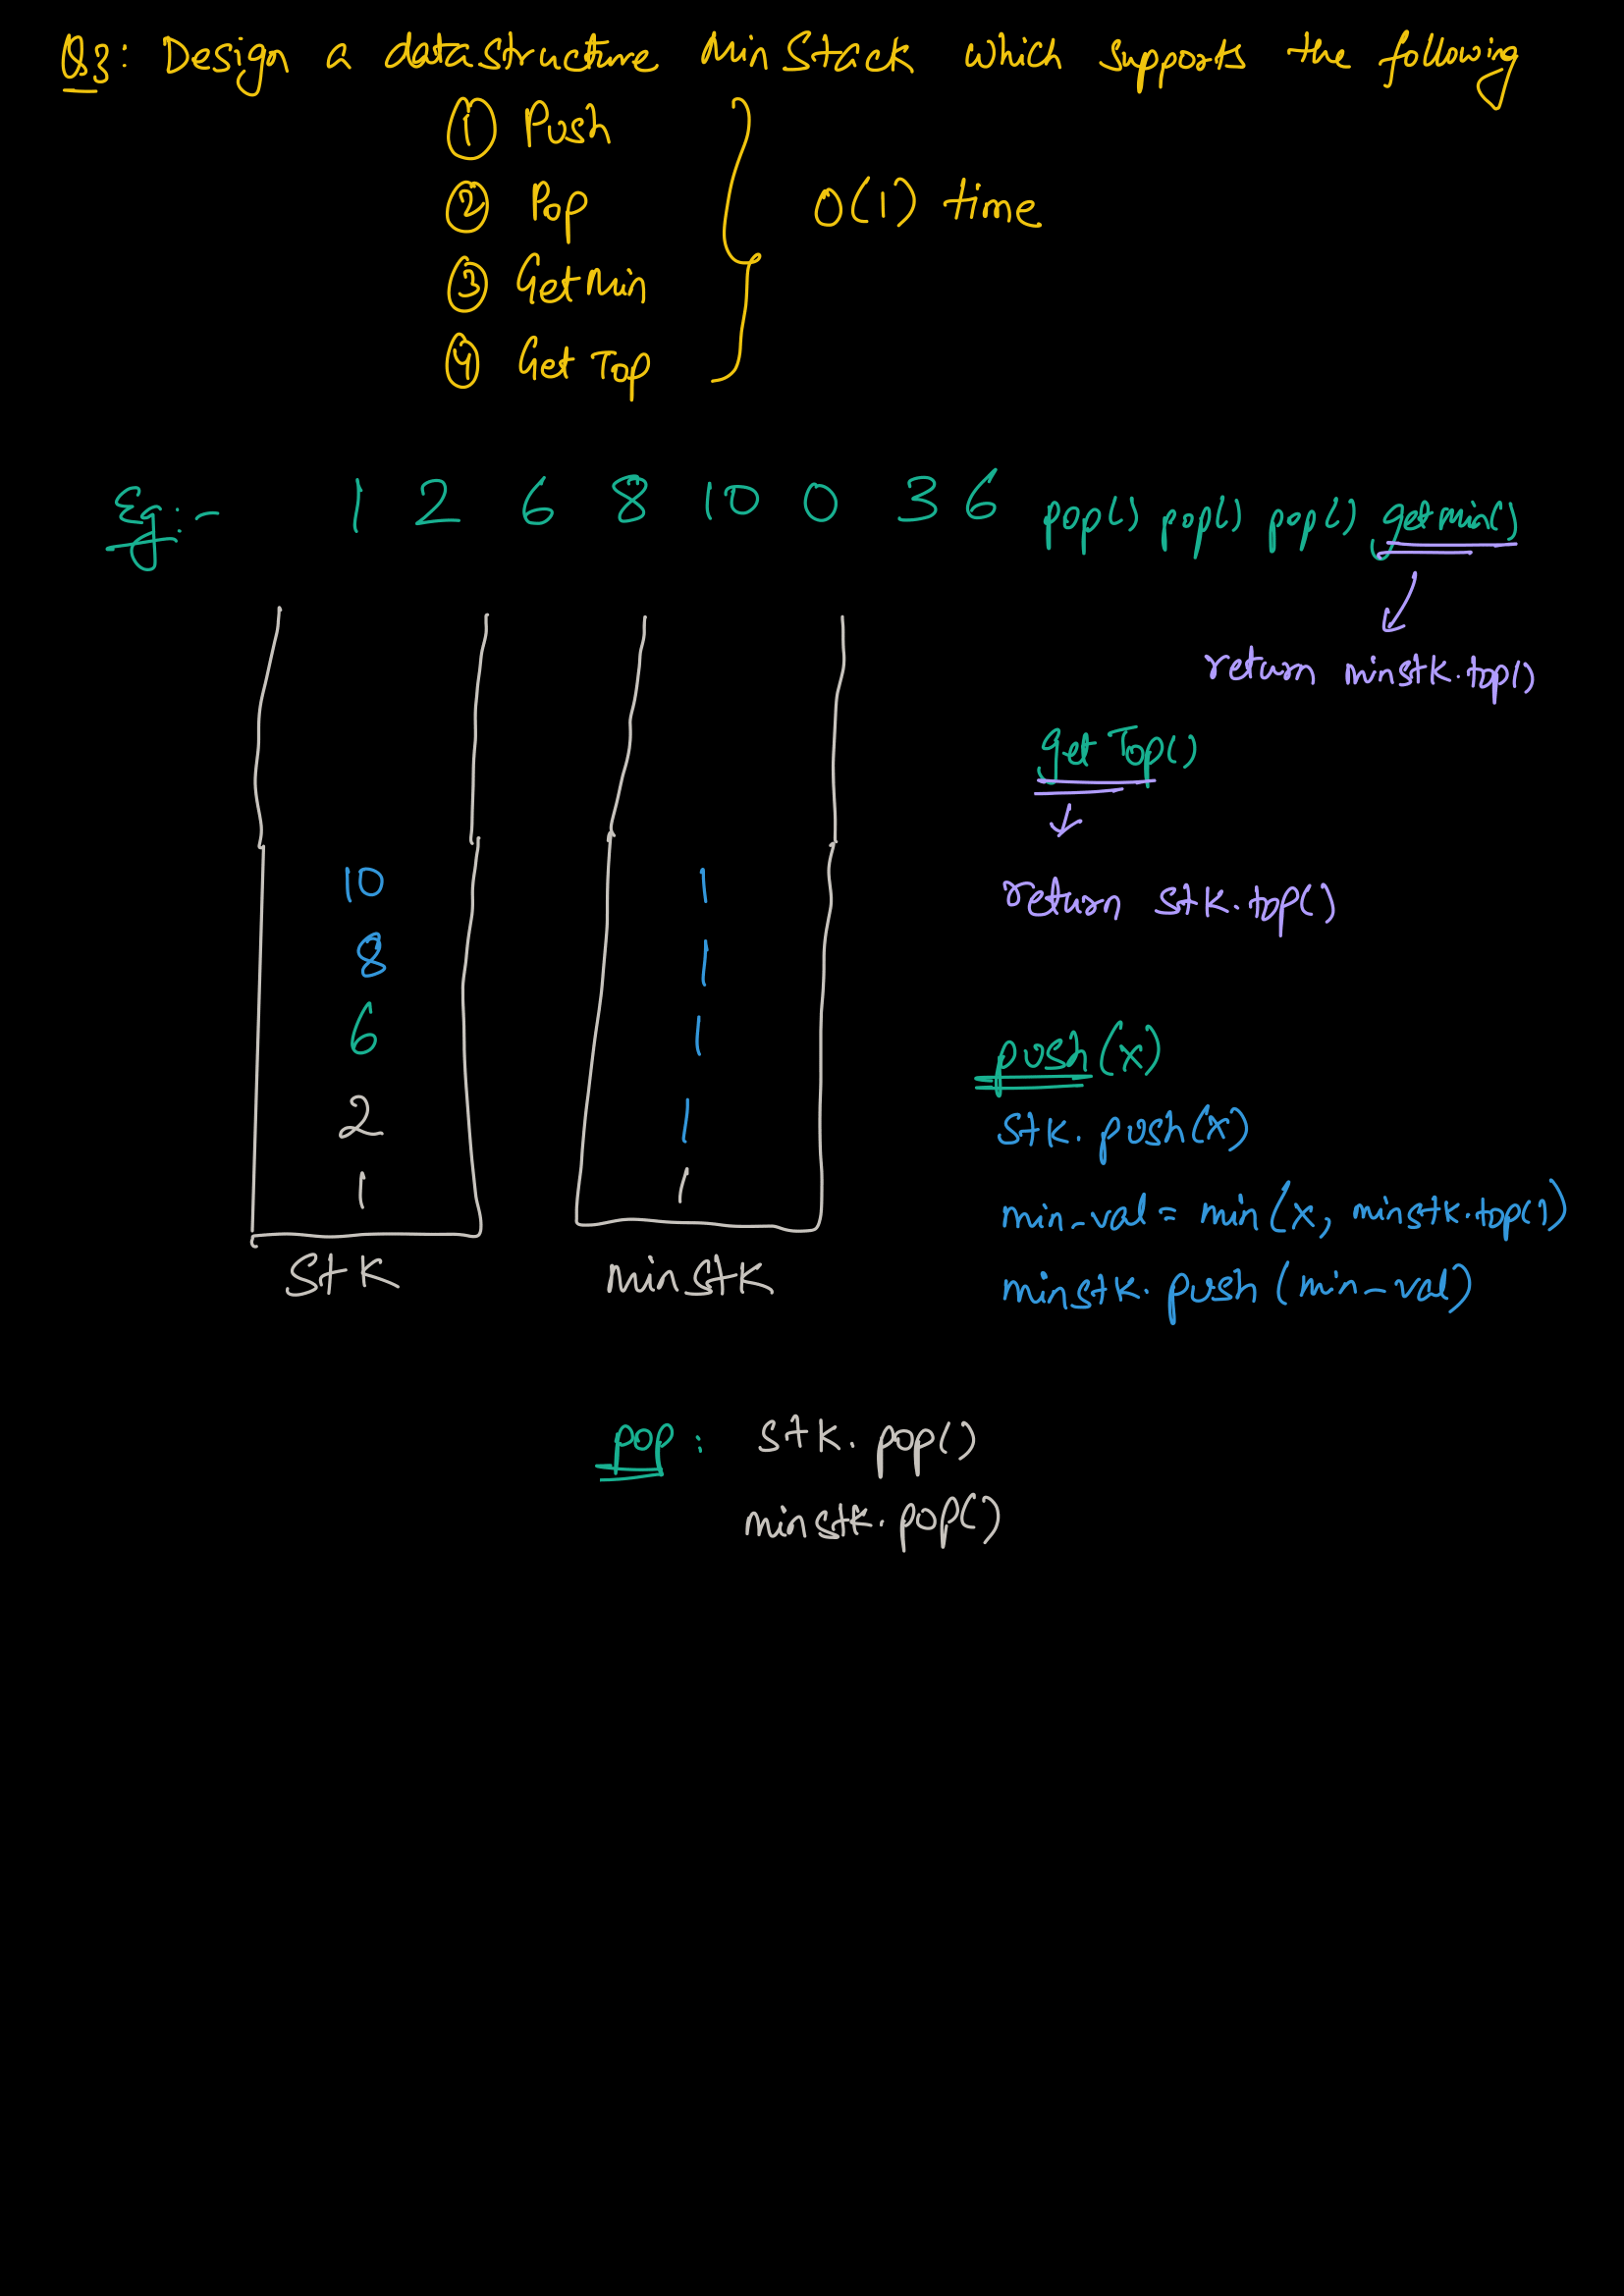 Q3: Design a datastructure MinStack which supports the following
① Push
② Pop
③ GetMin
④ Get Top
O(1) time
Eg:- 1 2 6 8 10 0 3 6 pop() pop() pop() getmin()
return minstk.top()
get Top()
return stk.top()
10 1
8 1
6 1
2 1
1 1
stk minstk
push(x)
stk.push(x)
min-val = min(x, minstk.top())
minstk.push(min-val)
pop: stk.pop()
minstk.pop()